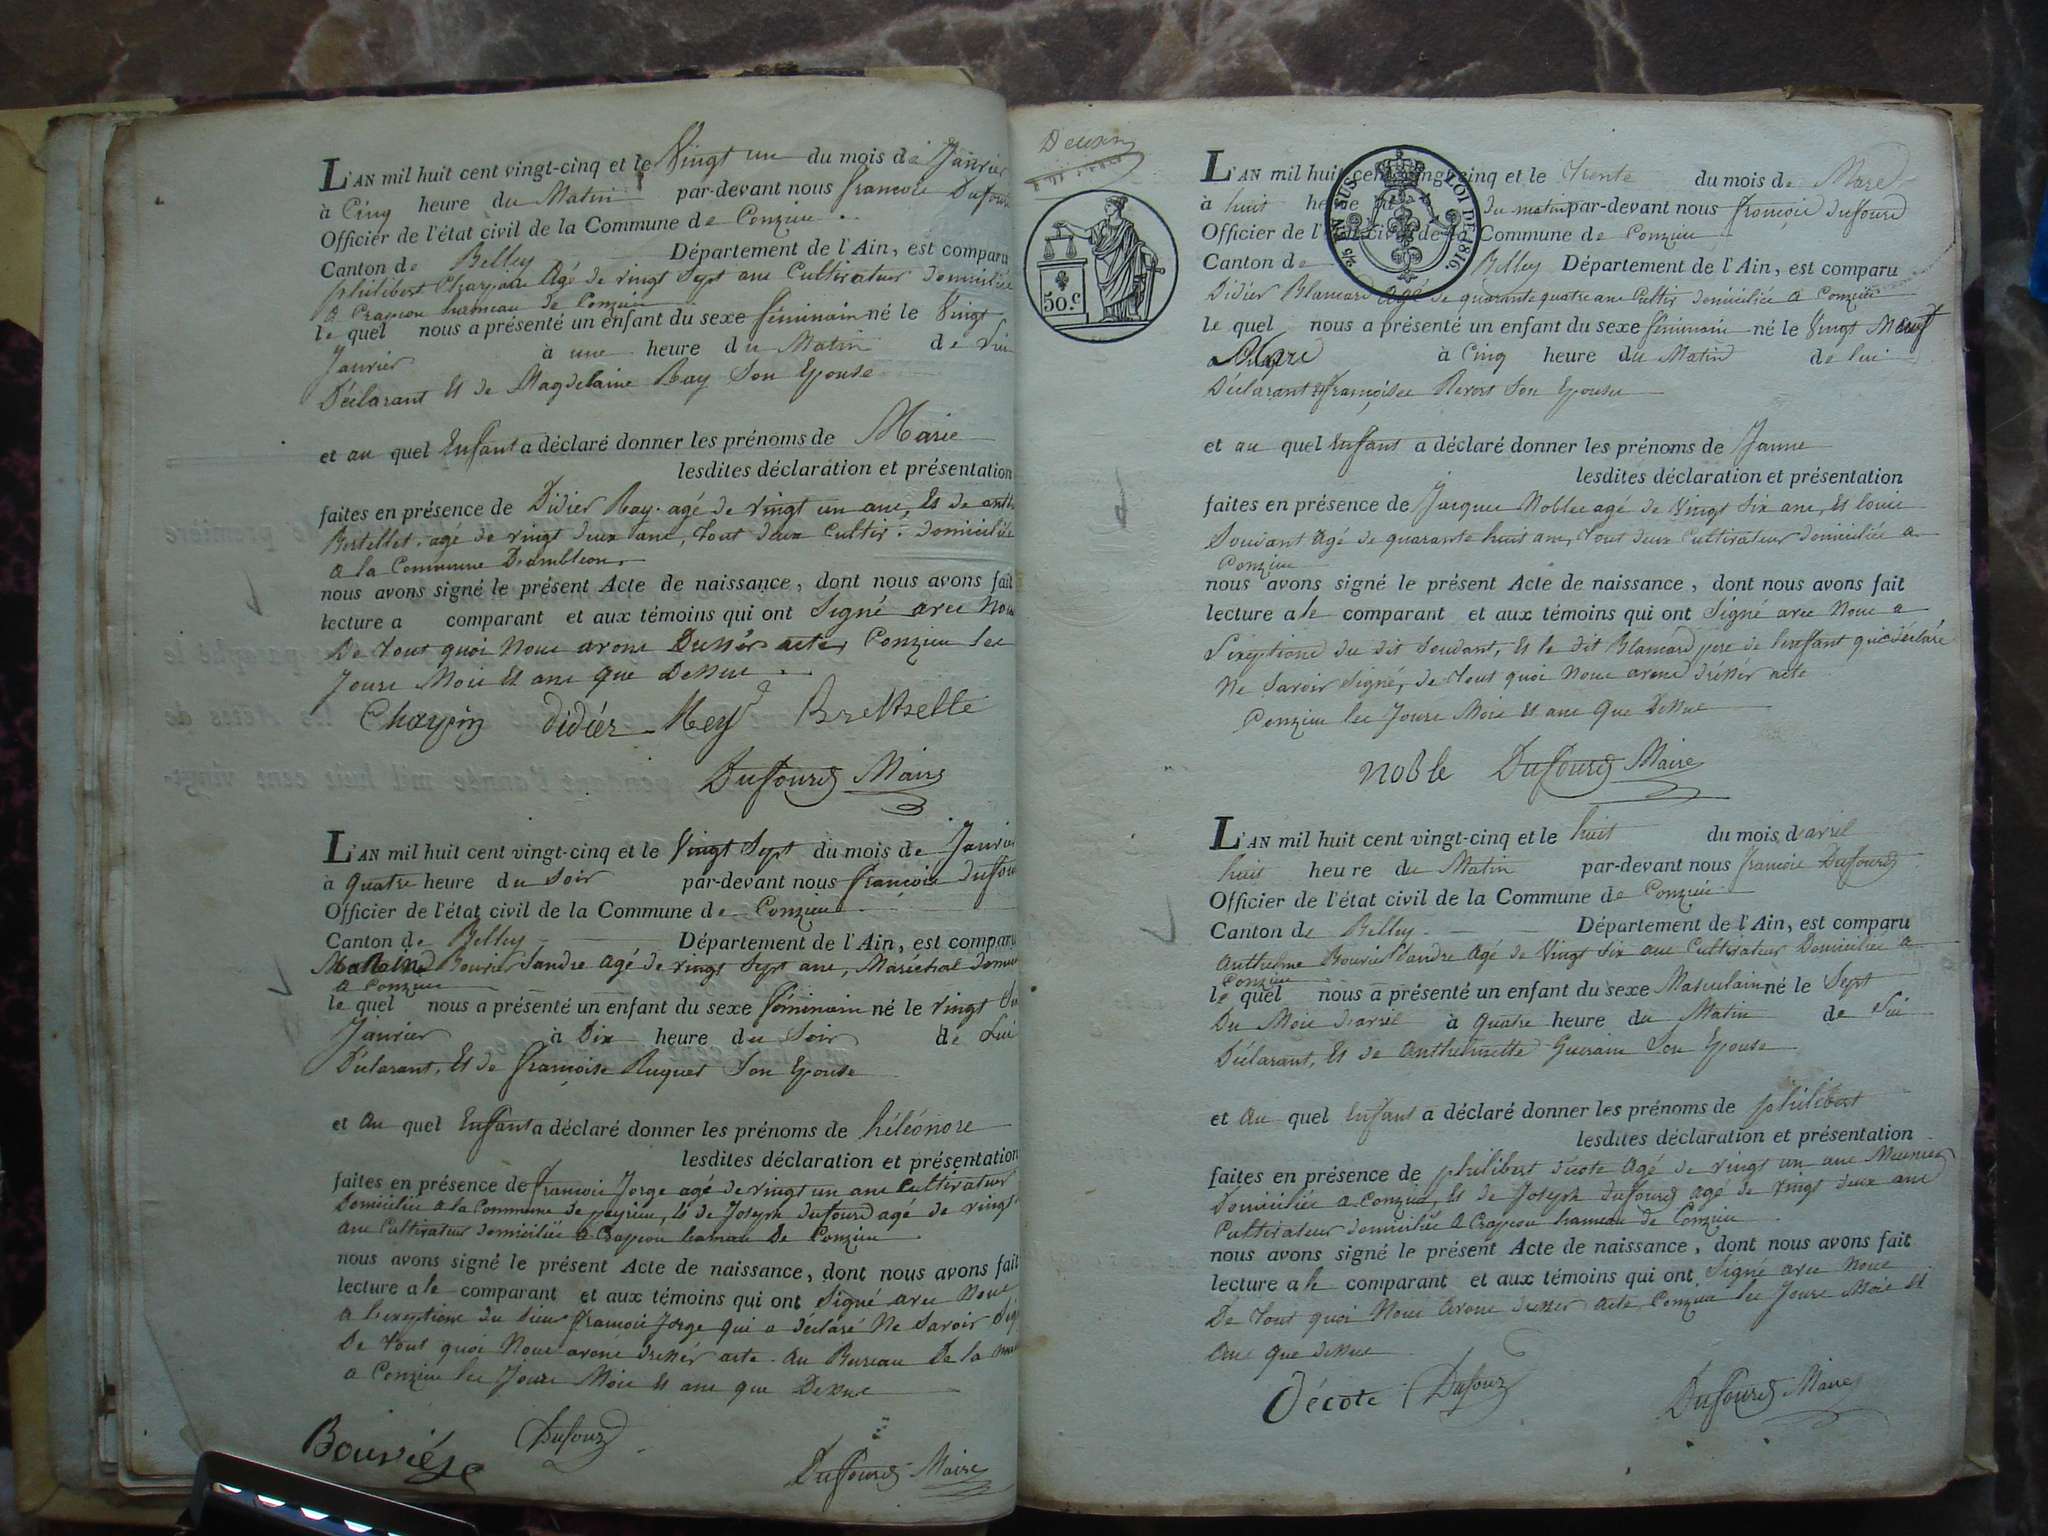 L'AN mil huit cent vingt-cinq et le Vingt un du mois de Janvier
à Cinq heure du Matin par-devant nous françois Dufour
Officier de l'état civil de la Commune de Conzieu
Canton de Belley Département de l'Ain, est comparu
philibert Chaypin Agé de vingt Sept ans Cultivateur domiciliée
a Crapeou hameau de Conzieu
le quel nous a présenté un enfant du sexe féminain né le Vingt
Janvier à une heure du Matin de Lui
Déclarant Et de Magdelaine Ray Son Epouse
et au quel Enfant a déclaré donner les prénoms de Marie
lesdites déclaration et présentation
faites en présence de Didier Ray agé de vingt un ans, Et de anth
Bertellet agé de vingt deux ans, tout deux Cultiv. domiciliée
a la Commune D'ambleon
nous avons signé le présent Acte de naissance, dont nous avons fait
lecture a comparant et aux témoins qui ont Signé avec Nous
De tout quoi Nous avons Dressér acte, Conzieu les
Jours Mois Et ans que Dessus
Chaypin didiér Rey Bretthelle
Duffourd Maire
L'AN mil huit cent vingt-cinq et le Vingt Sept du mois de Janvier
à Quatre heure du Soir par-devant nous françois Duffour
Officier de l'état civil de la Commune de Conzieu
Canton de Belley Département de l'Ain, est comparu
Bouvier Sandre agé de vingt Sept ans, Maréchal
a Conzieu
le quel nous a présenté un enfant du sexe féminain né le vingt
Janvier à Dix heure du Soir de Lui
Déclarant, Et de françoise Ruquet Son Epouse
et au quel Enfant a déclaré donner les prénoms de héléonore
lesdites déclaration et présentation
faites en présence de françois Jorge agé de vingt un ans Cultivateur
Domiciliée a la Commune de peyrieu, Et de Joseph duffourd agé de vingt
ans Cultivateur domiciliée a Crapeou hamau De Conzieu
nous avons signé le présent Acte de naissance, dont nous avons fait
lecture a le comparant et aux témoins qui ont Signé avec Nous
a l'exeptions du Sieur françois Jorge qui a déclaré Ne Savoir Sig
De tout quoi Nous avons dressér acte au Bureau De la
a Conzieu les Jours Mois Et ans que Dessus
Bouviér Dufour
Duffourd Maire
Deux
50.c
EN SUS LOI DE 1816.
L'AN mil huit cent vingt-cinq et le Trente du mois de Mars
à huit heure du matin par-devant nous françois duffourd
Officier de l'état civil de la Commune de Conzieu
Canton de Belley Département de l'Ain, est comparu
Didier Blancard Agé de quarante quatre ans Cultiv domiciliée a Conzieu
le quel nous a présenté un enfant du sexe féminain né le Vingt Neuf
Mars à Cinq heure du Matin de lui
Déclarant Et françoisee Revost Son Epouse
et au quel Enfant a déclaré donner les prénoms de Janne
lesdites déclaration et présentation
faites en présence de Jacques Noblee agé de Vingt Six ans, Et louis
Soudant Agé de quarante huit ans, tout deux Cultivateur domiciliée a
Conzieu
nous avons signé le présent Acte de naissance, dont nous avons fait
lecture a le comparant et aux témoins qui ont Signé avec Nous a
L'exeptions du dit Soudant, Et le dit Blancard pere de l'enfant qui déclaré
Ne Savoir Signé, de tout quoi Nous avons dréssér acte
Conzieu les Jours Mois Et ans que Dessus
noble Duffourd Maire
L'AN mil huit cent vingt-cinq et le huit du mois d'avril
huit heure du Matin par-devant nous francois Duffourd
Officier de l'état civil de la Commune de Conzieu
Canton de Belley Département de l'Ain, est comparu
Anthelme Bouvier Sandre Agé de Vingt Six ans Cultivateur Domiciliée a
Conzieu
le quel nous a présenté un enfant du sexe Masculain né le Sept
Du Mois d'avril à Quatre heure du Matin de Lui
Déclarant, Et de Anthelmette Guerain Son Epouse
et au quel Enfant a déclaré donner les prénoms de philibert
lesdites déclaration et présentation
faites en présence de philibert décote Agé de vingt un ans Meunier
Domiciliée a Conzieu, Et de Joseph duffourd agé de vingt deux ans
Cultivateur domiciliée a Crapeou hameau de Conzieu
nous avons signé le présent Acte de naissance, dont nous avons fait
lecture a le comparant et aux témoins qui ont Signé avec Nous
De tout quoi Nous avons dressér acte Conzieu les Jours Mois Et
ans que dessus
Décote Dufour Duffourd Maire